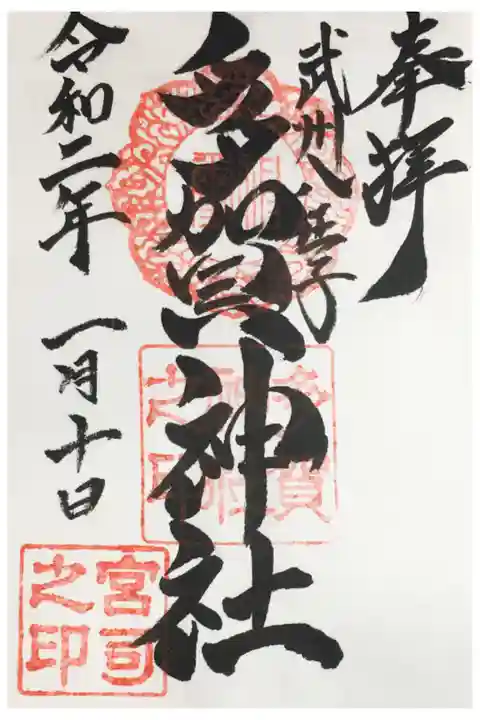 奉拝
武州八王子
多賀神社
令和二年 一月十日
多賀神社之印
宮司之印